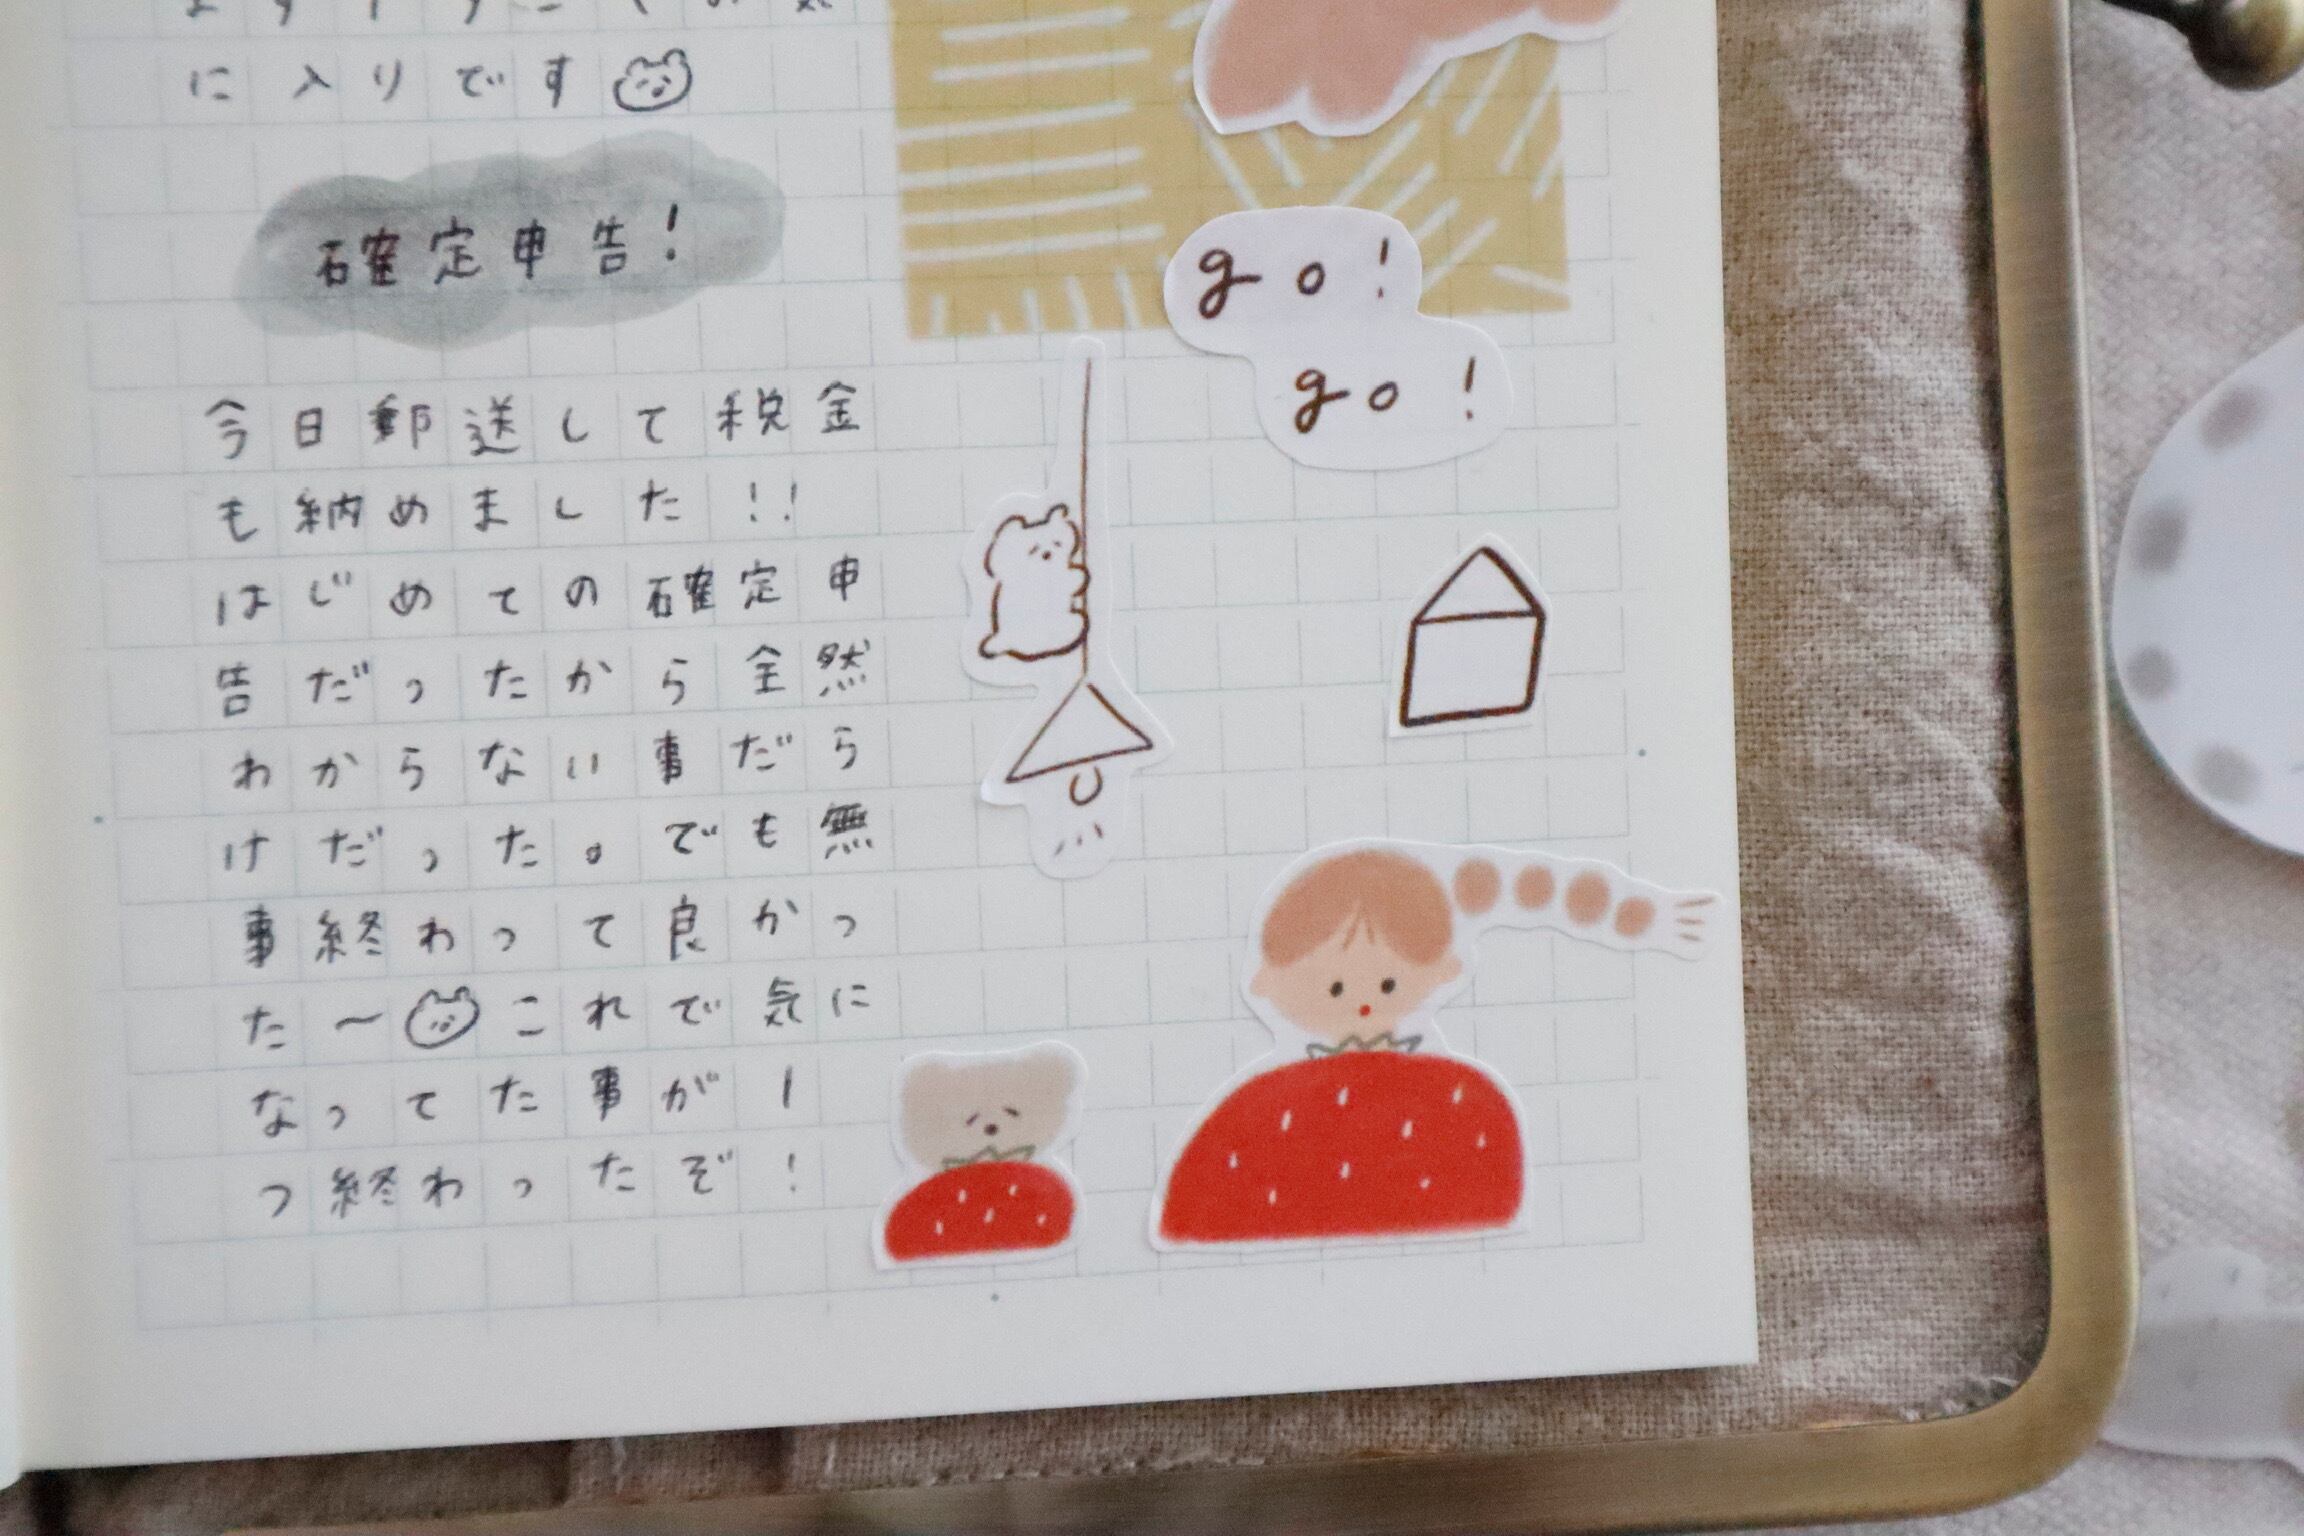 に入りです
確定申告!
今日郵送して税金
も納めました!!
はじめての確定申
告だったから全然
わからない事だら
けだった。でも無
事終わって良かっ
た〜これで気に
なってた事が1
つ終わったぞ!
go!
go!